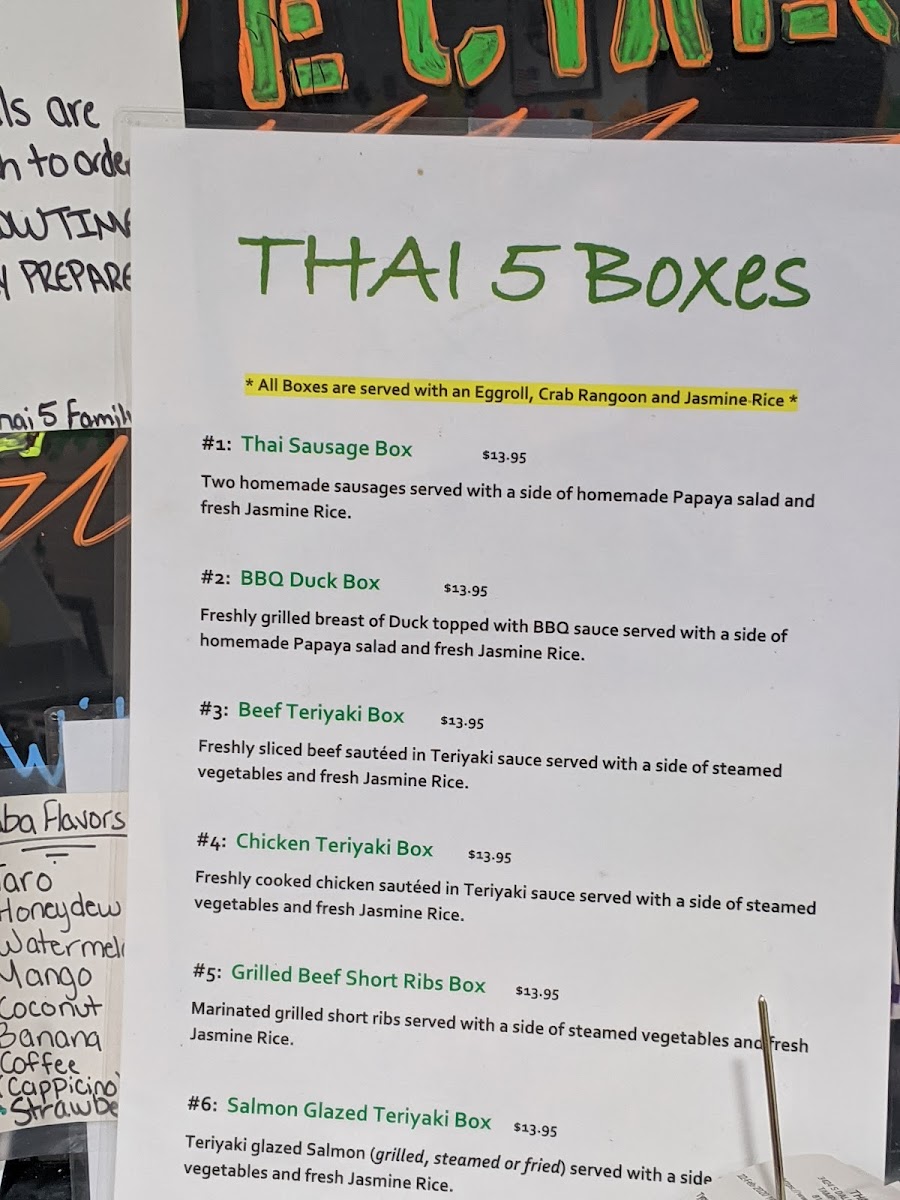 THAI 5 Boxes
* All Boxes are served with an Eggroll, Crab Rangoon and Jasmine Rice *
#1: Thai Sausage Box $13.95
Two homemade sausages served with a side of homemade Papaya salad and
fresh Jasmine Rice.
#2: BBQ Duck Box $13.95
Freshly grilled breast of Duck topped with BBQ sauce served with a side of
homemade Papaya salad and fresh Jasmine Rice.
#3: Beef Teriyaki Box $13.95
Freshly sliced beef sautéed in Teriyaki sauce served with a side of steamed
vegetables and fresh Jasmine Rice.
#4: Chicken Teriyaki Box $13.95
Freshly cooked chicken sautéed in Teriyaki sauce served with a side of steamed
vegetables and fresh Jasmine Rice.
#5: Grilled Beef Short Ribs Box $13.95
Marinated grilled short ribs served with a side of steamed vegetables and fresh
Jasmine Rice.
#6: Salmon Glazed Teriyaki Box $13.95
Teriyaki glazed Salmon (grilled, steamed or fried) served with a side
vegetables and fresh Jasmine Rice.
are
to
5
Flavors
Taro
Honeydew
Mango
Coconut
Banana
Coffee
(Cappicino)